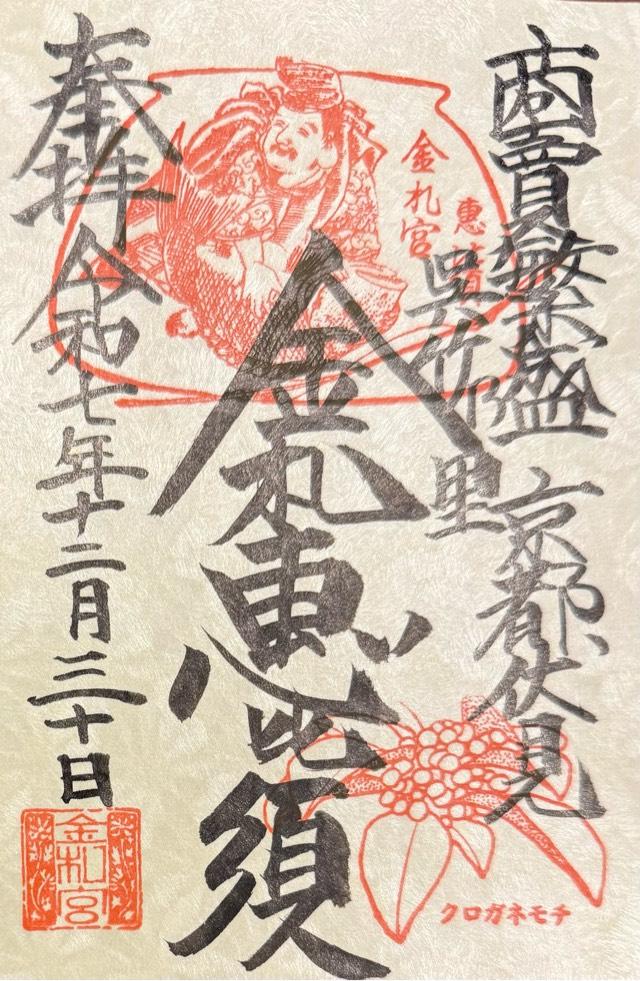 商賣繁盛 京都伏見
呉竹 里
金札宮
惠
金札恵比須
奉拝 令和七年十二月三十日
金札宮
クロガネモチ